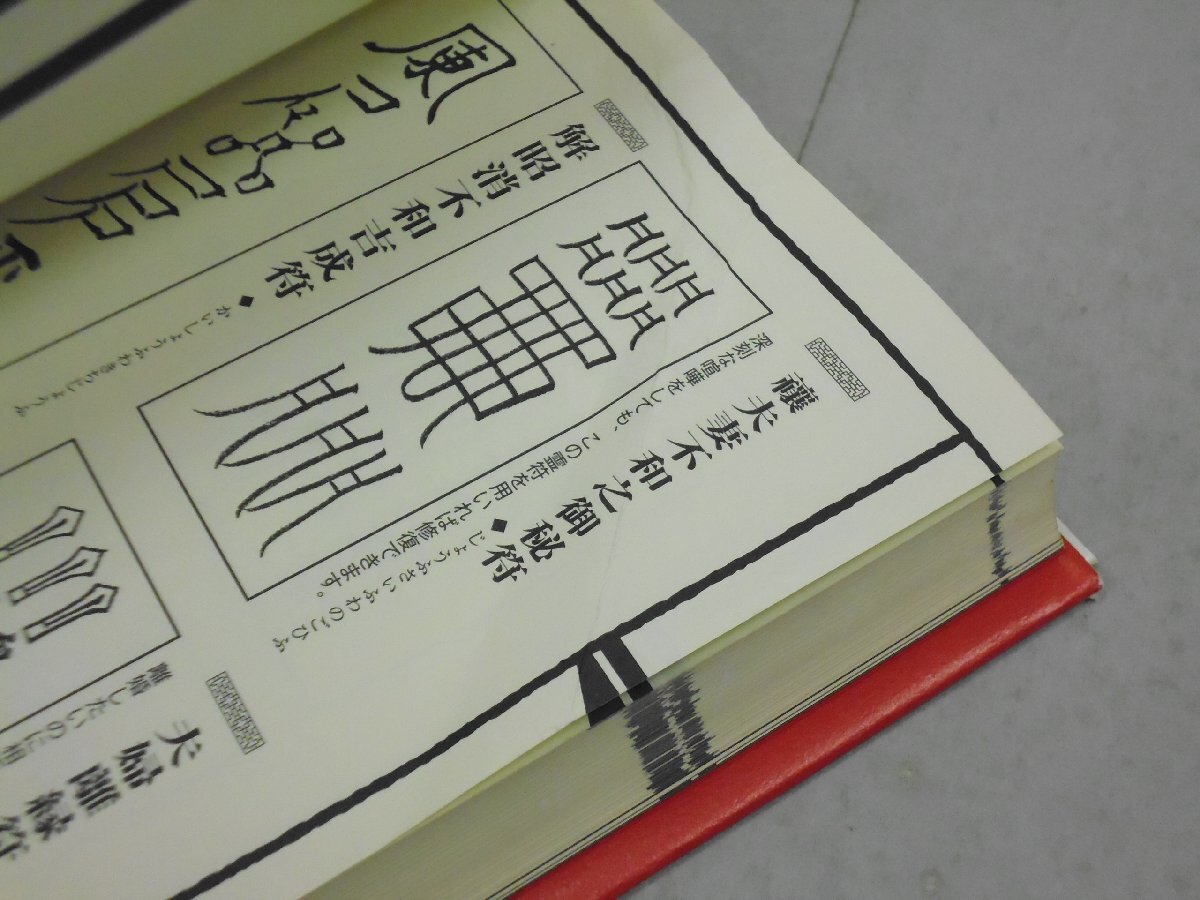 禳夫妻不和之御秘符 ◆じょうふさいふわのごひふ
深刻な喧嘩をしても、この霊符を用いれば修復できます。
解昭消不和吉成符 ◆かいしょうふわきちじょうふ
夫婦離縁符
離婚したいのに相